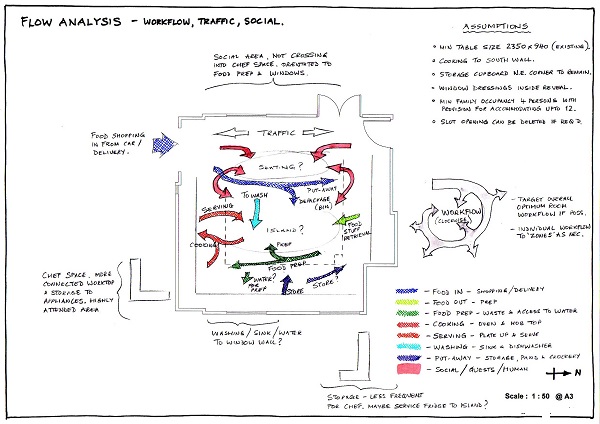 FLOW ANALYSIS - WORKFLOW, TRAFFIC, SOCIAL.
ASSUMPTIONS
MIN TABLE SIZE 2350 x 940 (EXISTING).
COOKING TO SOUTH WALL.
STORAGE CUPBOARD N.E. CORNER TO REMAIN.
WINDOW DRESSINGS INSIDE REVEAL.
MIN FAMILY OCCUPANCY 4 PERSONS WITH
PROVISION FOR ACCOMMODATING UPTO 12.
SLOT OPENING CAN BE DELETED IF REQ'D.
SOCIAL AREA, NOT CROSSING
INTO CHEF SPACE. ORENTATED TO
FOOD PREP & WINDOWS.
FOOD SHOPPING
IN FROM CAR/
DELIVERY.
TRAFFIC
SEATING?
PUT-AWAY
TO WASH
DEPACKAGE
(BIN)
SERVING
FOOD
STUFF
RETRIEVAL
ISLAND?
COOKING
PREP
FOOD PREP
WATER?
FOR
PREP
STORE
STORE?
WORKFLOW
(CLOCKWISE)
- TARGET OVERALL
OPTIMUM ROOM
WORKFLOW IF POSS.
- INDIVIDUAL WORKFLOW
TO 'ZONES' AS ARC.
CHEF SPACE, MORE
CONNECTED WORKTOP
& STORAGE TO
APPLIANCES, HIGHLY
ATTENDED AREA
WASHING / SINK / WATER
TO WINDOW WALL?
STORAGE - LESS FREQUENT
FOR CHEF. MAYBE SERVICE FRIDGE TO ISLAND?
- FOOD IN - SHOPPING/DELIVERY
- FOOD OUT - PREP
- FOOD PREP - WASTE & ACCESS TO WATER
- COOKING - OVEN & HOB TOP
- SERVING - PLATE UP & SERVE
- WASHING - SINK & DISHWASHER
- PUT-AWAY - STORAGE, PANS & CROCKERY
- SOCIAL/GUESTS/HUMAN
N
Scale: 1:50 @ A3